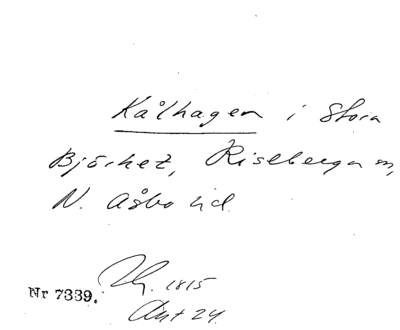 Kålhagen i Stora
Björket, Riseberga sn,
N. Åsbo hd.
Nr 7339. 1815
Akt 24